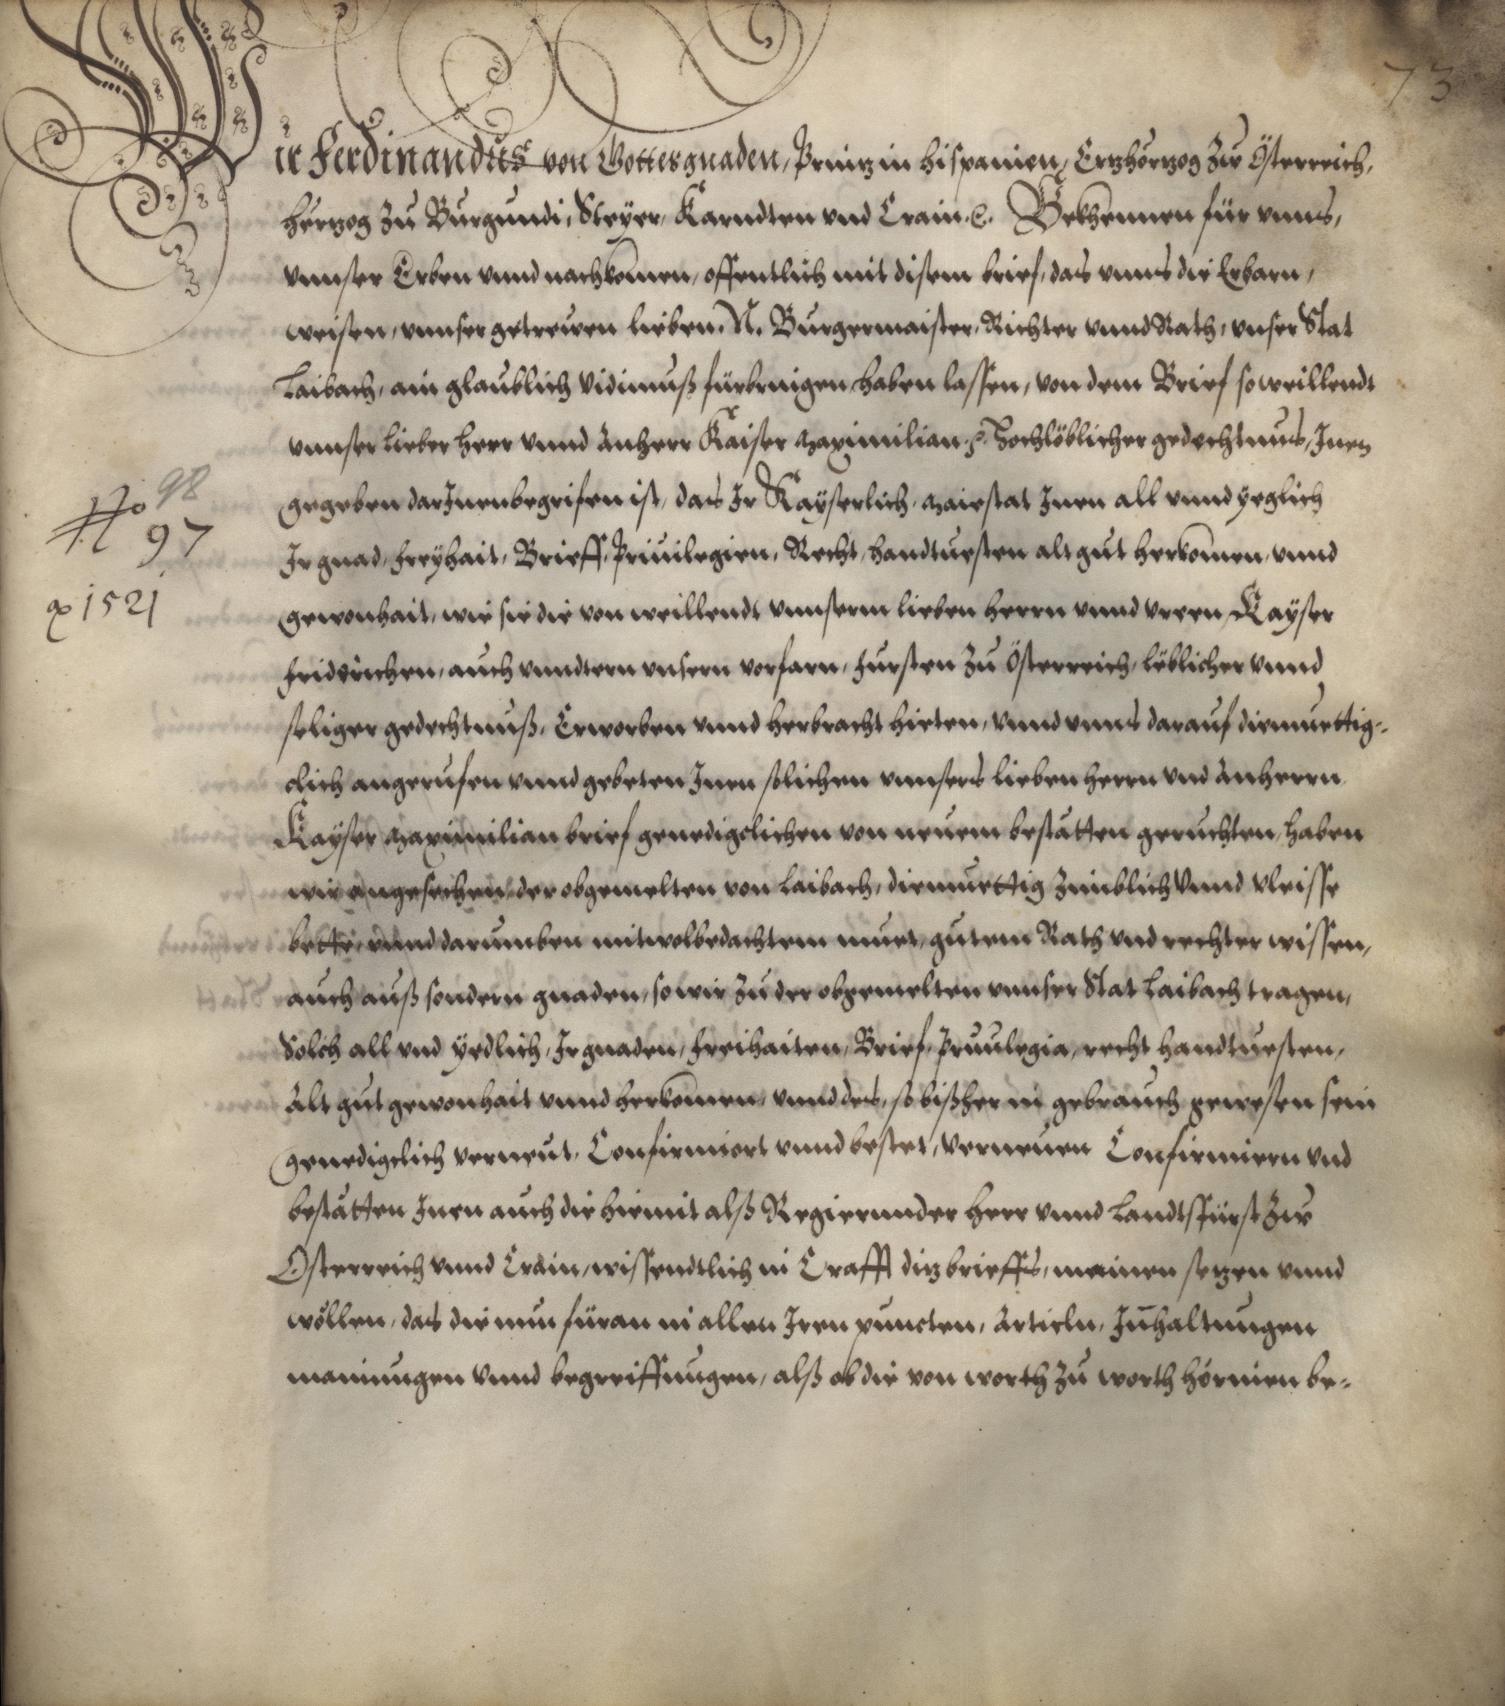 73
Wir Ferdinandus von Gottes gnaden, Prinz in Hispanien, Ertzhertzog Zu Österreich,
hertzog Zu Burgundi, Steyer, Karndten vnd Crain. &. Bekhennen für vnns,
vnnser Erben vnnd nachkomen, offentlich mit disem brief, das vnns die Erbarn,
weisen, vnnser getrewen lieben. N. Burgermaister, Richter vnnd Rath, vnser Stat
Laibach, ain glaublich Vidimuß fürbringen haben lassen, von dem Brief so weillendt
vnnser lieber herr vnnd Anherr Kaiser Maximilian &. Hochlöblicher gedechtnus, Inen
98
gegeben dar Innen begrifen ist, das Ir Kayserlich Maiestat Inen all vnnd yeglich
No 97
Ir gnad, freyhait, Brieff, Priuilegien, Recht, handtuesten alt gut herkomen, vnnd
1521
gewonhait, wie sie die von weillendt vnnserm lieben herrn vnnd vreen Kayser
fridrichen, auch anndern vnsern vorfarn, fursten Zu Österreich, löblicher vnnd
seliger gedechtnuß, Erworben vnnd herbracht hieten, vnnd vnns darauf diemuettig-
clich angerufen vnnd gebeten Inen solichen vnnsers lieben herrn vnd Anherrn
Kayser Maximilian brief genedigclichen von neuem bestätten geruchten, haben
wir angesechen der obgemelten von Laibach, diemuettig Zimblich vnnd vleisse
bette, vnnd darumben mit wolbedachtem muet, gutem Rath vnd rechter wissen,
auch auß sondern gnaden, so wir Zu der obgemelten vnnser Stat Laibach tragen,
Solch all vnd yedlich, Ir gnaden, freihaiten, Brief, Priuilegia, recht handtuesten,
Alt gut gewonhait vnnd herkomen, vnnd des, so bißher in gebrauch gewesen sein
genedigclich verneut, Confirmiert vnnd bestet, verneuen Confirmiern vnd
bestätten Inen auch die hiemit alß Regierunder herr vnnd Landtsfürst Zu
Osterreich vnnd Crain, wissendtlich in Crafft ditz brieffs, mainen setzen vnnd
wöllen, das die nun füran in allen Iren puncten, Articln, Inhaltungen
mainungen vnnd begreiffungen, alß ob die von worth Zu worth hierinen be-